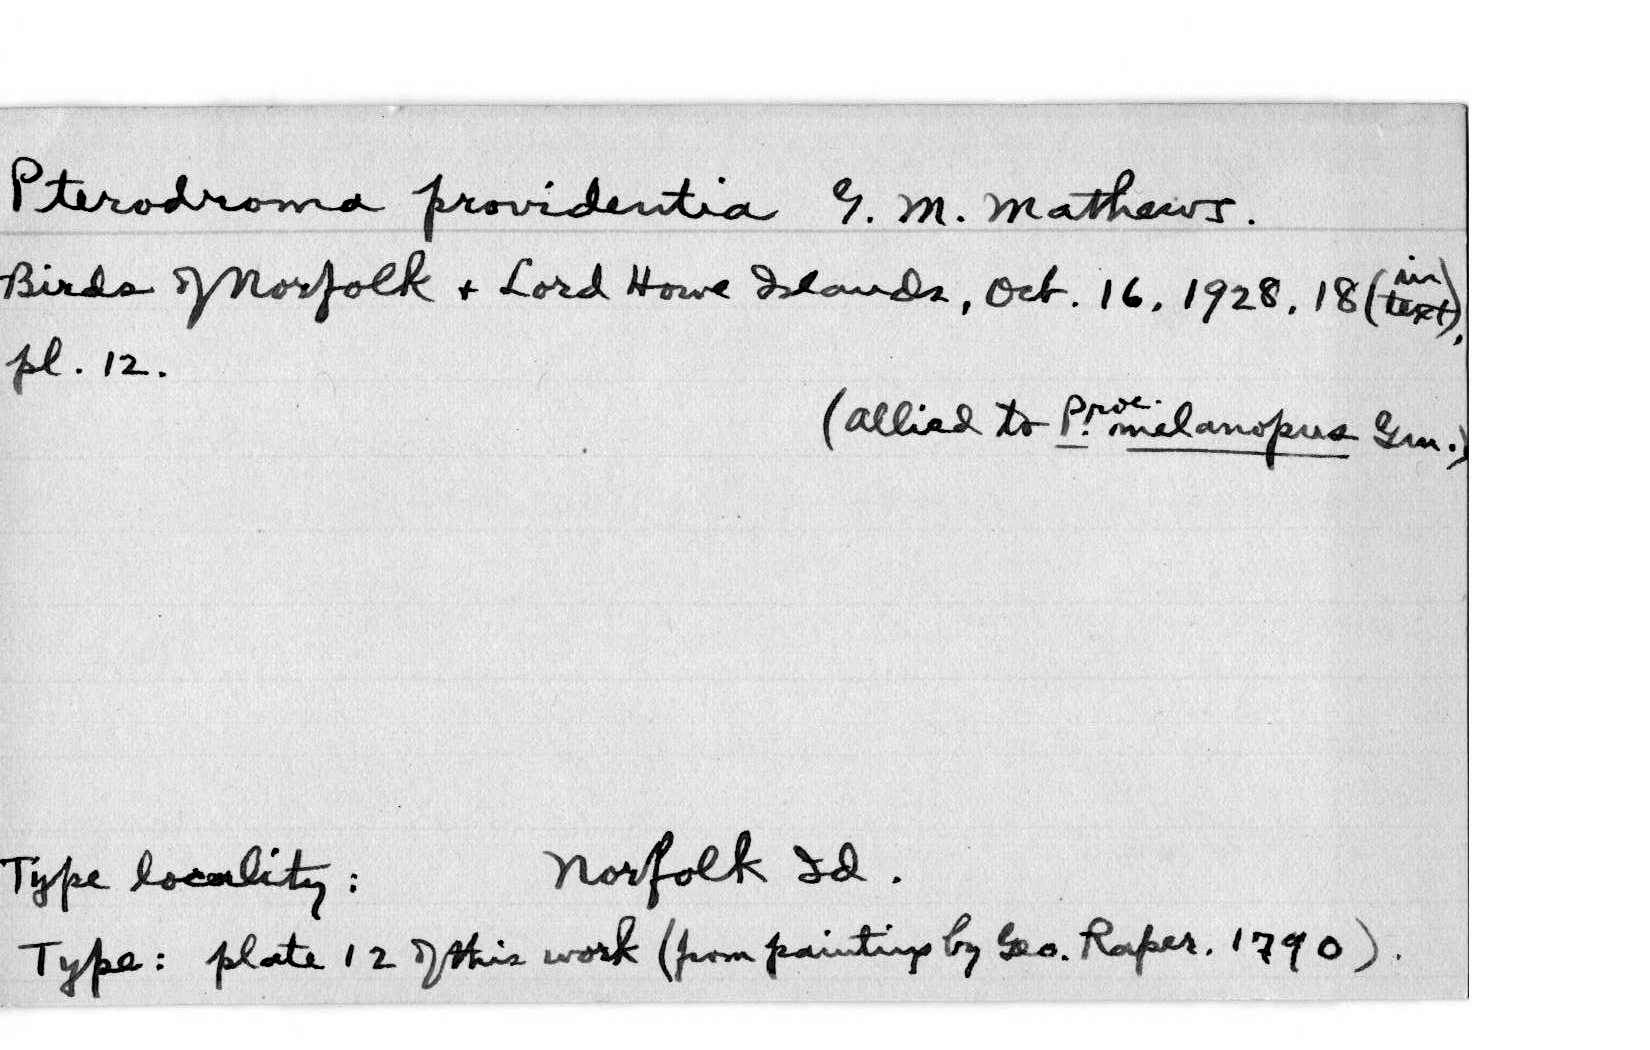 Pterodroma providentia G. M. Mathews.
Birds of Norfolk + Lord Howe Islands, Oct. 16, 1928, 18 (in text),
pl. 12.
(allied to Proc. melanopus Gm.)
Type locality: Norfolk Id.
Type: plate 12 of this work (from paintings by Geo. Raper. 1790).